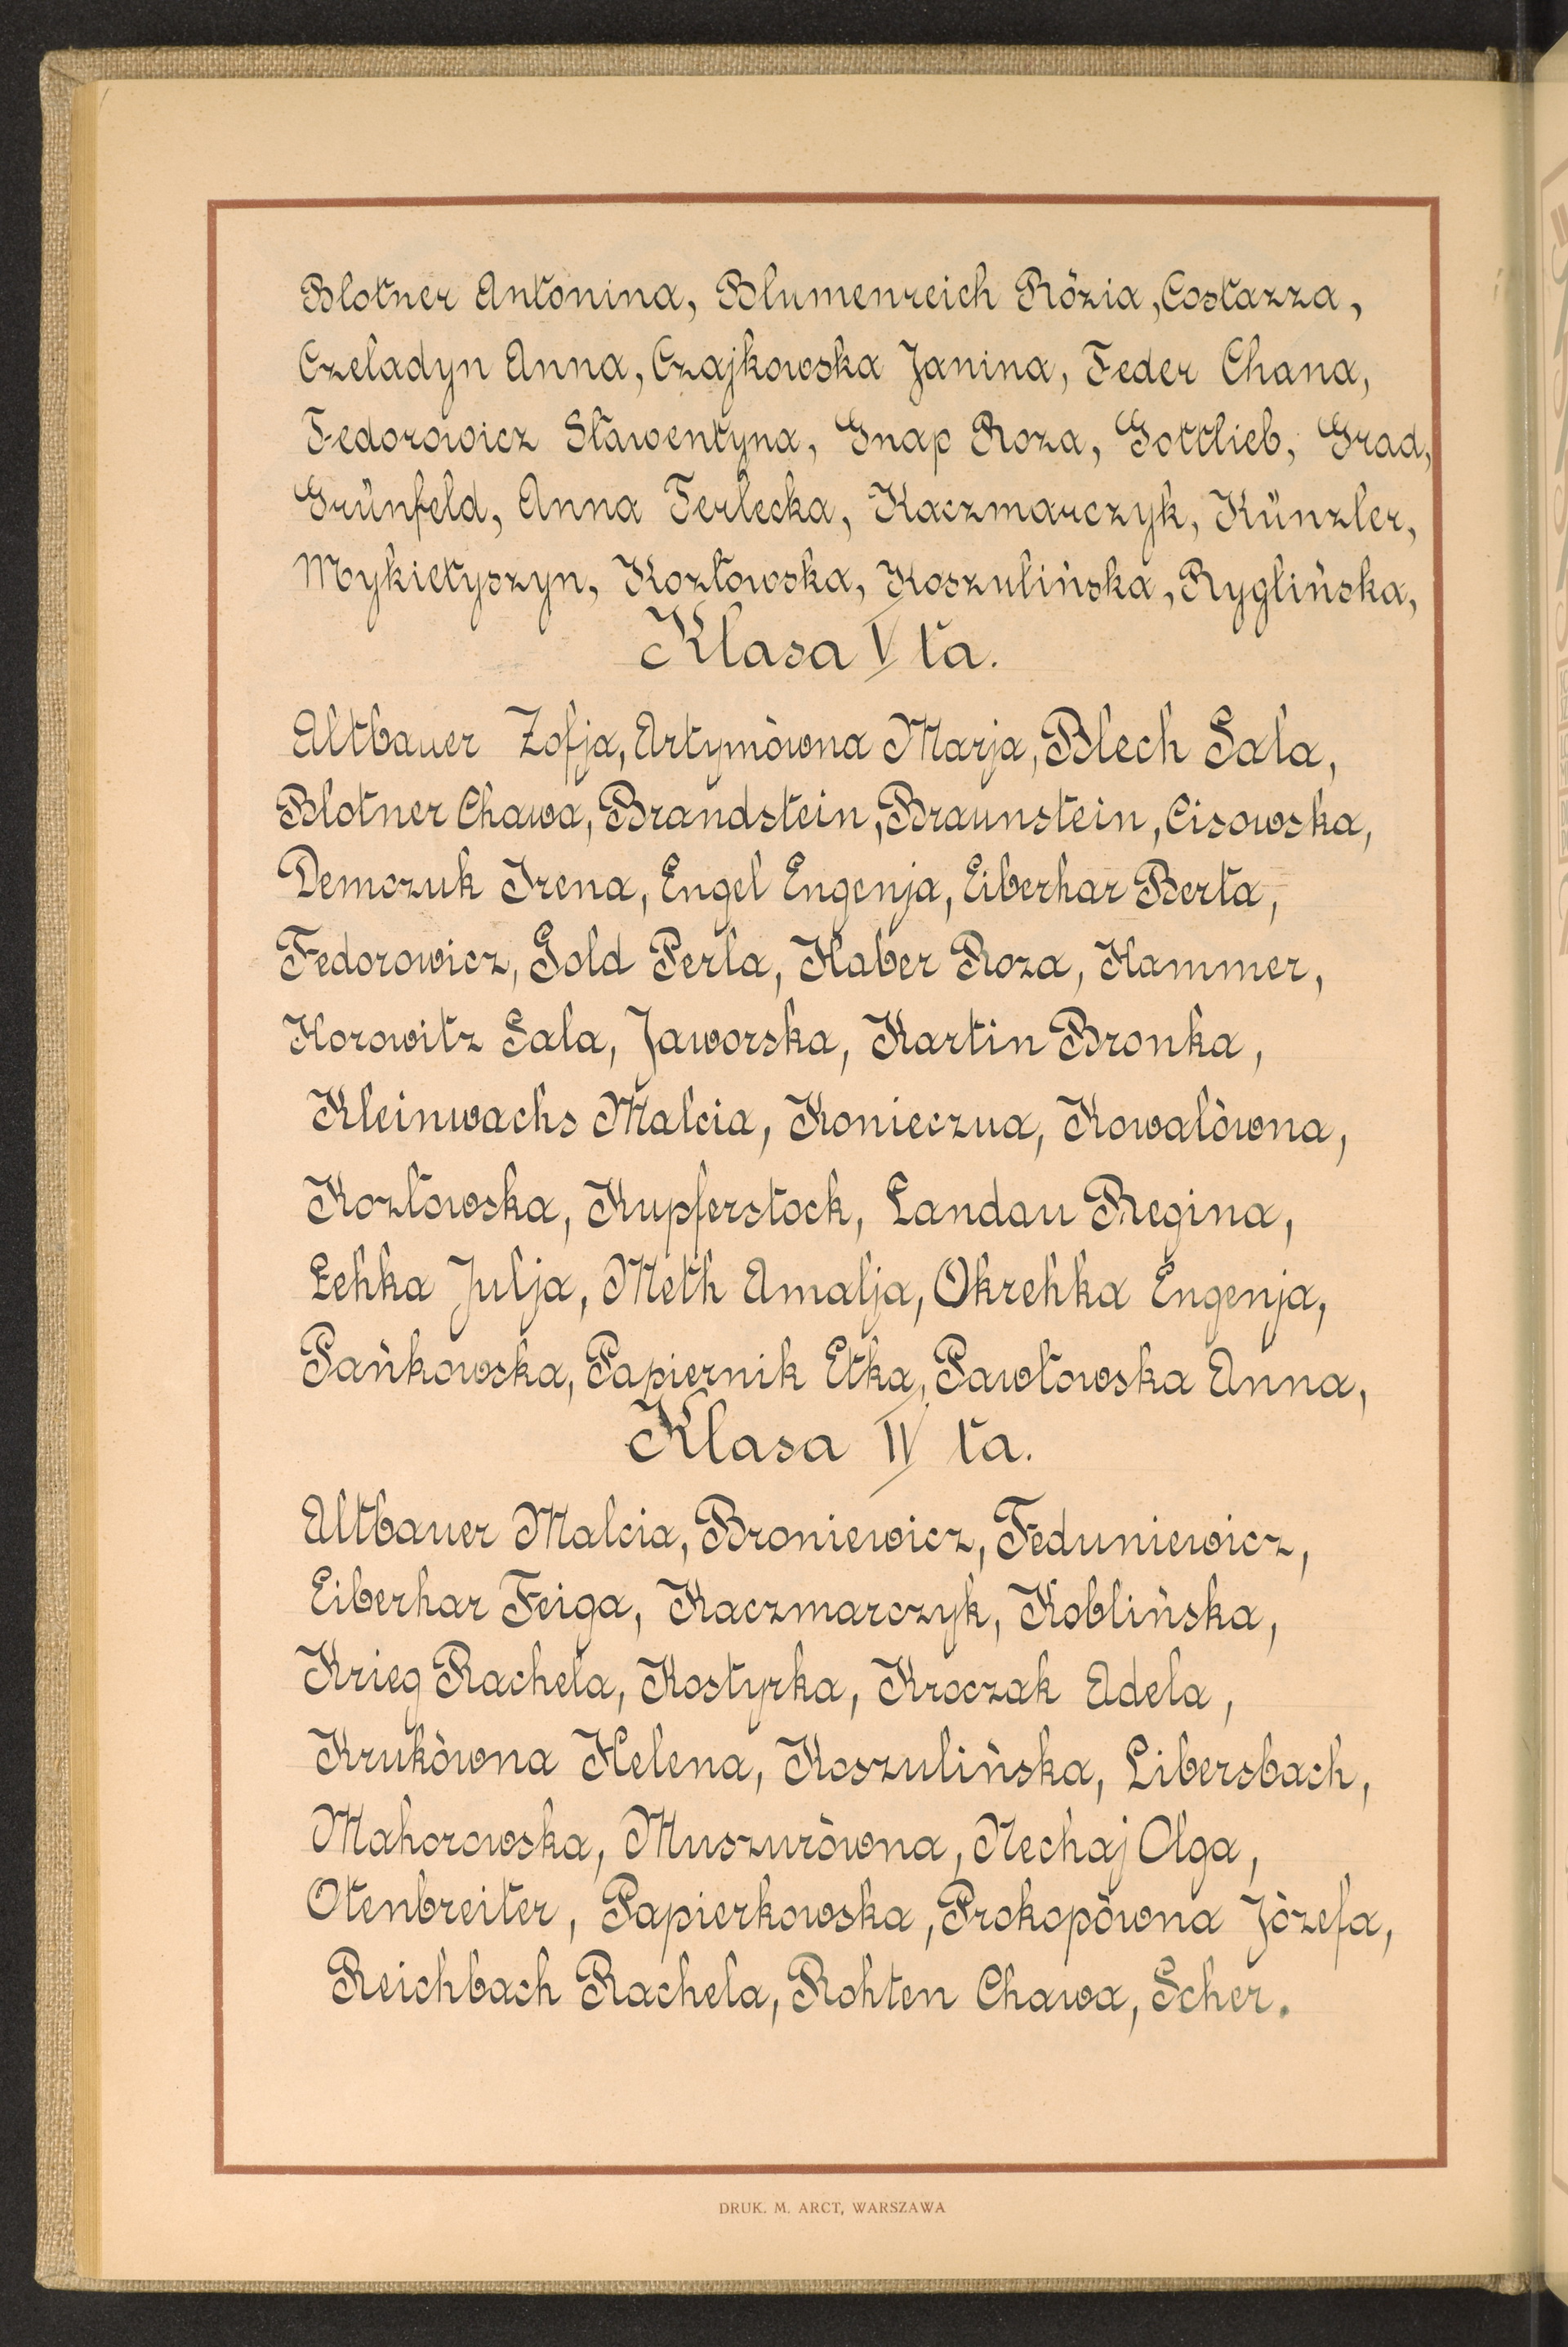 Blotner Antonina, Blumenreich Rózia, Costazza,
Czeladyn Anna, Czajkowska Janina, Feder Chana,
Fedorowicz Sławentyna, Gnap Roza, Gottlieb, Grad,
Grünfeld, Anna Terlecka, Kaczmarczyk, Künzler,
Mykietyszyn, Kozłowska, Koszulińska, Ryglińska,
Klasa V ta.
Altbauer Zofja, Artymówna Marja, Blech Sala,
Blotner Chawa, Brandstein, Braunstein, Cisowska,
Demczuk Irena, Engel Eugenja, Eiberhar Berta,
Fedorowicz, Gold Perla, Haber Roza, Hammer,
Horowitz Sala, Jaworska, Kartin Bronka,
Kleinwachs Malcia, Konieczua, Kowalówna,
Kozłowska, Kupferstock, Landau Regina,
Łehka Julja, Meth Amalja, Okrehka Eugenja,
Pańkowska, Papiernik Etka, Pawłowska Anna,
Klasa IV ta.
Altbauer Malcia, Broniewicz, Feduniewicz,
Eiberhar Feiga, Kaczmarczyk, Koblińska,
Krieg Rachela, Kostyrka, Kroczak Adela,
Krukówna Helena, Koszulińska, Libersbach,
Mahorowska, Muszurówna, Nechaj Olga,
Otenbreiter, Papierkowska, Prokopówna Józefa,
Reichbach Rachela, Rohten Chawa, Scher.
DRUK. M. ARCT, WARSZAWA